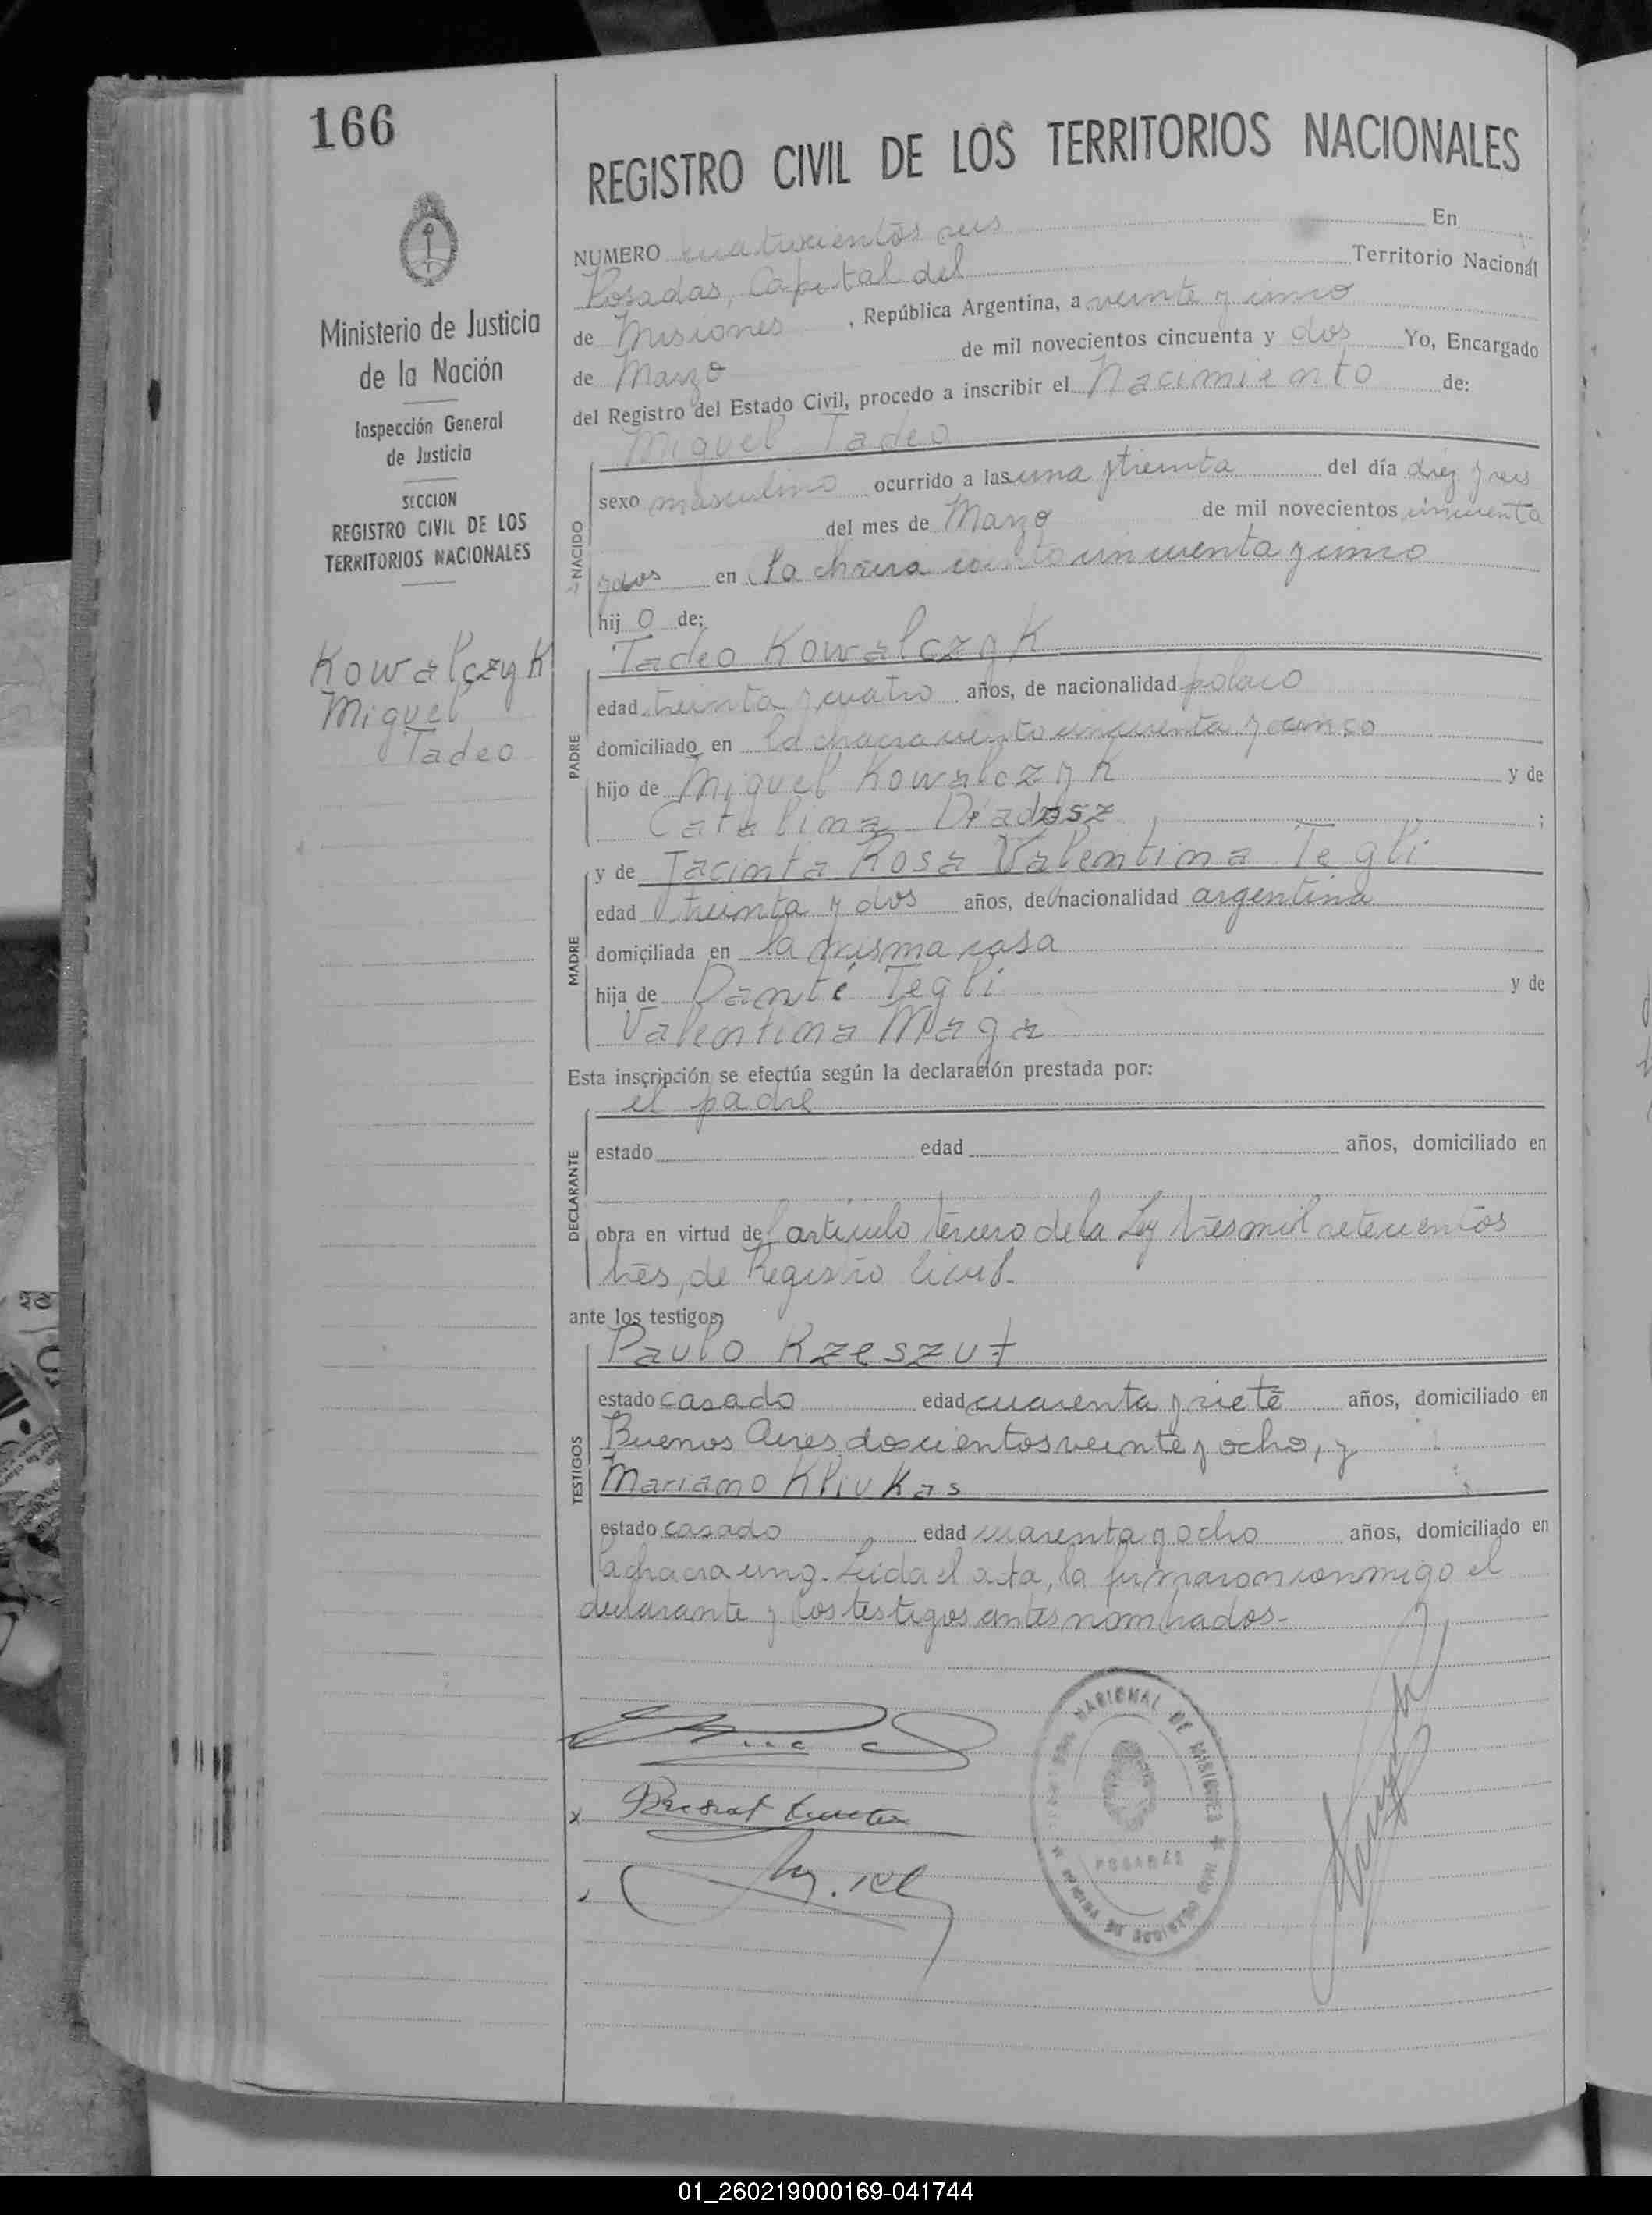 166
Ministerio de Justicia
de la Nación
Inspección General
de Justicia
SECCION
REGISTRO CIVIL DE LOS
TERRITORIOS NACIONALES
Kowalczyk
Miguel
Tadeo
REGISTRO CIVIL DE LOS TERRITORIOS NACIONALES
NUMERO cuatrocientos seis En
Posadas, Capital del Territorio Nacional
de Misiones, República Argentina, a veinte y cinco
de Marzo de mil novecientos cincuenta y dos Yo, Encargado
del Registro del Estado Civil, procedo a inscribir el Nacimiento de:
Miguel Tadeo
NACIDO
sexo masculino ocurrido a las una y treinta del día diez y seis
del mes de Marzo de mil novecientos cincuenta
y dos en la chacra ciento cincuenta y cinco
hij o de:
Tadeo Kowalczyk
PADRE
edad treinta y cuatro años, de nacionalidad polaco
domiciliado en la chacra ciento cincuenta y cinco
hijo de Miguel Kowalczyk y de
Catalina Diadosz ;
MADRE
y de Jacinta Rosa Valentina Tegli
edad treinta y dos años, de nacionalidad argentina
domiciliada en la misma casa
hija de Danté Tegli y de
Valentina Maga
Esta inscripción se efectúa según la declaración prestada por:
el padre
DECLARANTE
estado edad años, domiciliado en
obra en virtud del artículo tercero de la Ley tres mil setecientos
tres, de Registro Civil.
ante los testigos:
Paulo Rzeszut
TESTIGOS
estado casado edad cuarenta y siete años, domiciliado en
Buenos Aires doscientos veinte y ocho, y
Mariano Kliukas
estado casado edad cuarenta y ocho años, domiciliado en
la chacra uno. Leida el acta, la firmaron conmigo el
declarante y los testigos antes nombrados.-
NACIONAL DE MISIONES
POSADAS
OFICINA DE REGISTRO CIVIL
01_260219000169-041744